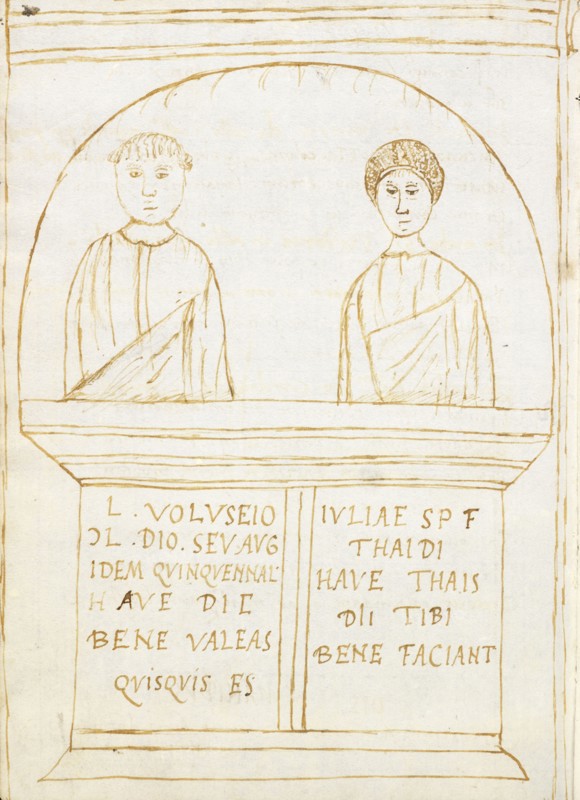 L . VOLVSEIO
ↃL . DIO . SEV AVG
IDEM QUINQVENNAL
HAVE DIE
BENE VALEAS
QVISQVIS ES
IVLIAE SP F
THAIDI
HAVE THAIS
DII TIBI
BENE FACIANT